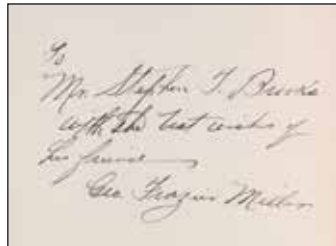 To
Mr. Stephen T. Brooks
with the best wishes of
his friend
Geo Frazier Miller